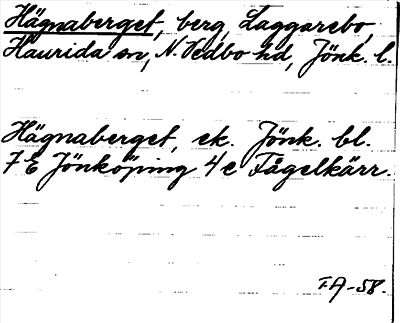 Hägnaberget, berg, Laggarebo,
Haurida sn, N. Vedbo hd, Jönk. l.
Hägnaberget, ek. Jönk. bl.
7 E Jönköping 4 e Fågelkärr.
FA-58.